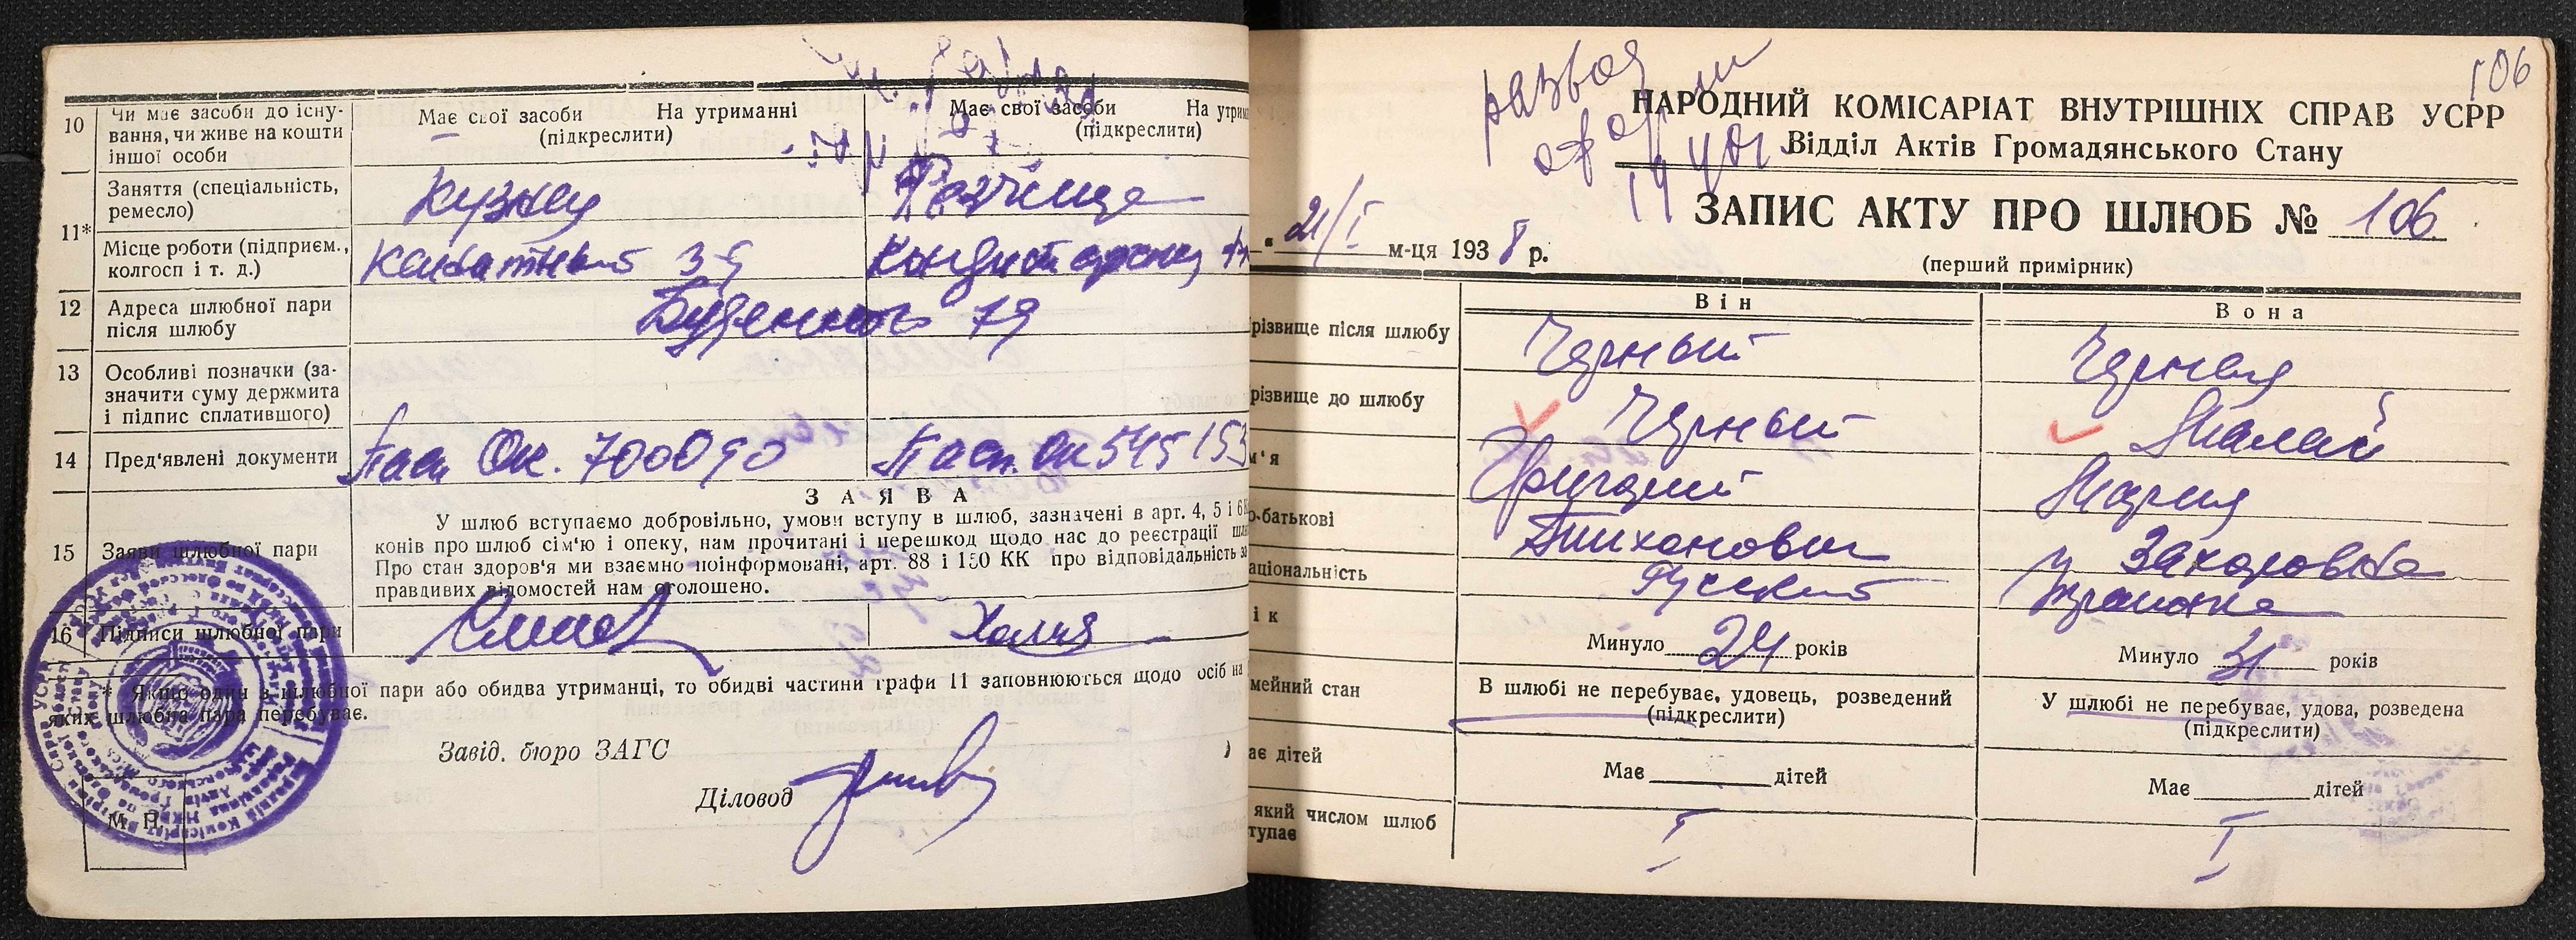 10
Чи має засоби до існу-
вання, чи живе на кошти
іншої особи
Має свої засоби На утриманні
(підкреслити)
Має свої засоби На утрим
(підкреслити)
11*
Заняття (спеціальність,
ремесло)
Місце роботи (підприєм.,
колгосп і т. д.)
Канатный з-д
12
Адреса шлюбної пари
після шлюбу
Буденного 79
13
Особливі позначки (за-
значити суму держмита
і підпис сплатившого)
14
Пред'явлені документи
Пасп Ок. 700090
Пасп. Ок 545153
ЗАЯВА
15
Заяви шлюбної пари
У шлюб вступаємо добровільно, умови вступу в шлюб, зазначені в арт. 4, 5 і 6
конів про шлюб сім'ю і опеку, нам прочитані і перешкод щодо нас до реєстрації шл
Про стан здоров'я ми взаємно поінформовані, арт. 88 і 150 КК про відповідальність за
правдивих відомостей нам оголошено.
16
Підписи шлюбної пари
* Якщо один з шлюбної пари або обидва утриманці, то обидві частини графи 11 заповнюються щодо осіб на
яких шлюбна пара перебуває.
Завід. бюро ЗАГС
Діловод
М. П.
106
развод
НАРОДНИЙ КОМІСАРІАТ ВНУТРІШНІХ СПРАВ УСРР
Відділ Актів Громадянського Стану
ЗАПИС АКТУ ПРО ШЛЮБ № 106
(перший примірник)
„ 21/I м-ця 1938 р.
Він
Вона
різвище після шлюбу
Черный
Черная
різвище до шлюбу
Черный
Малай
м'я
Григорий
Мария
о-батькові
Тихонович
Захаровна
аціональність
Русский
Украинка
ік
Минуло 24 років
Минуло 31 років
мейний стан
В шлюбі не перебуває, удовець, розведений
(підкреслити)
У шлюбі не перебуває, удова, розведена
(підкреслити)
ає дітей
Має дітей
Має дітей
який числом шлюб
тупає
I
I